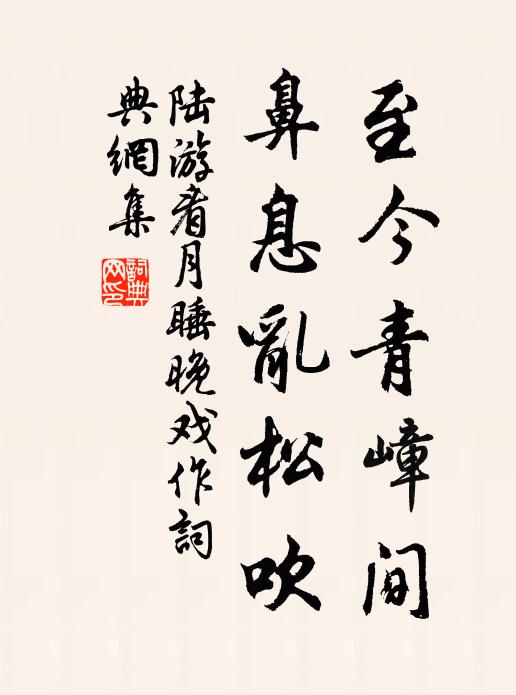 至今青嶂间
鼻息亂松吹
陆游看月睡晚戏作詞
典網集
詞典
网印